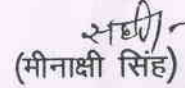 (मीनाक्षी सिंह)